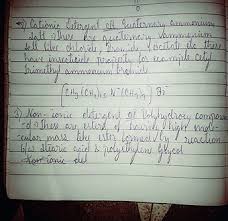 Cationic Detergent Quaternary ammonium
salt these are quaternary ammonium
salt like chloride, acetate etc. these
have insecticide property for example cetyl
trimethyl ammonium bromide
[CH3(CH2)15 N+(CH3)3] Br-
3) Non-ionic detergent of Polyhydroxy compound
these are esters of high mole-
cular mass like ester formed by reaction
b/w stearic acid & polyethylene glycol
Non ionic det